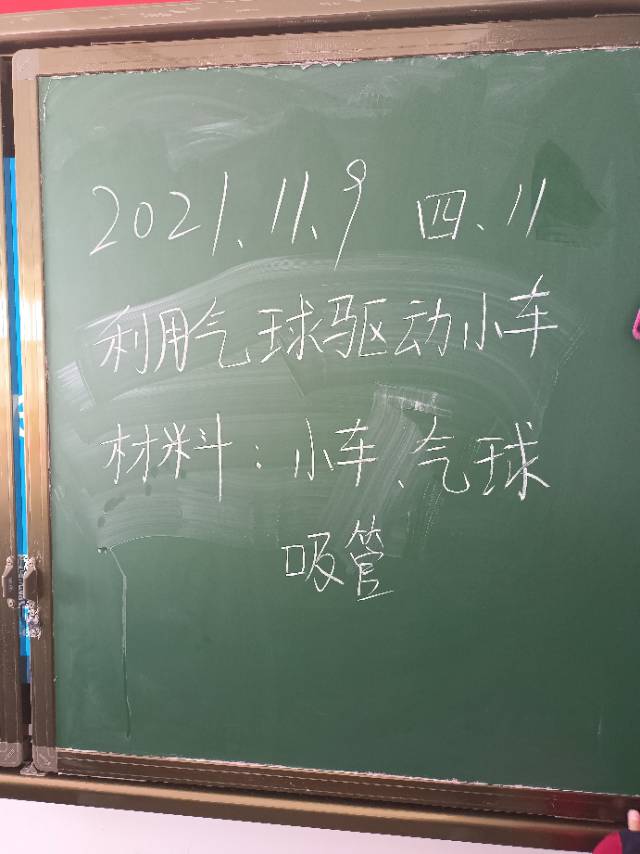 2021.11.9 四、11
利用气球驱动小车
材料：小车、气球
吸管